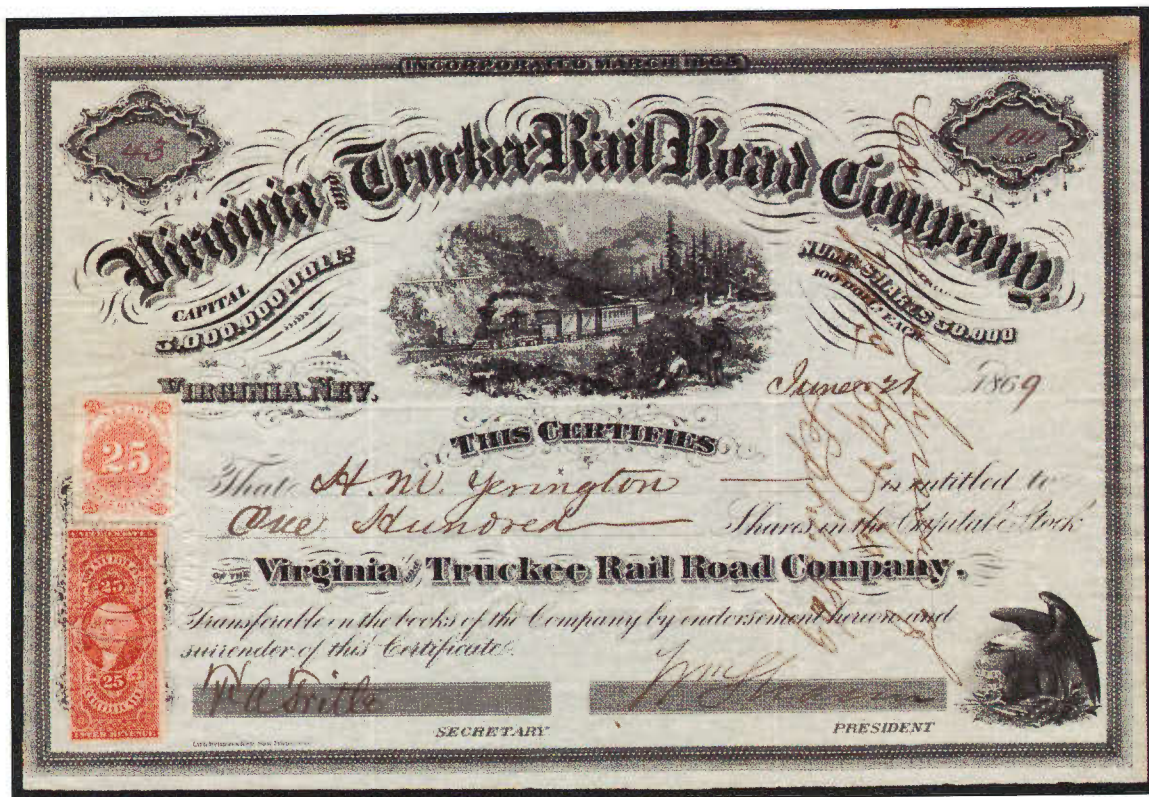 INCORPORATED, MARCH 1868
43
100
Virginia and Truckee Rail Road Company,
CAPITAL
3,000,000 DOLLS.
NUMB. SHARES 30,000
100 DOLLS. EACH
VIRGINIA, NEV.
June 21 1869
THIS CERTIFIES
That H. M. Yerington is entitled to
One Hundred Shares in the Capital Stock
OF THE Virginia and Truckee Rail Road Company.
Transferable on the books of the Company by endorsement hereon and
surrender of this Certificate.
SECRETARY
PRESIDENT
25
25
25
25
CERTIFICATE
INTER. REVENUE